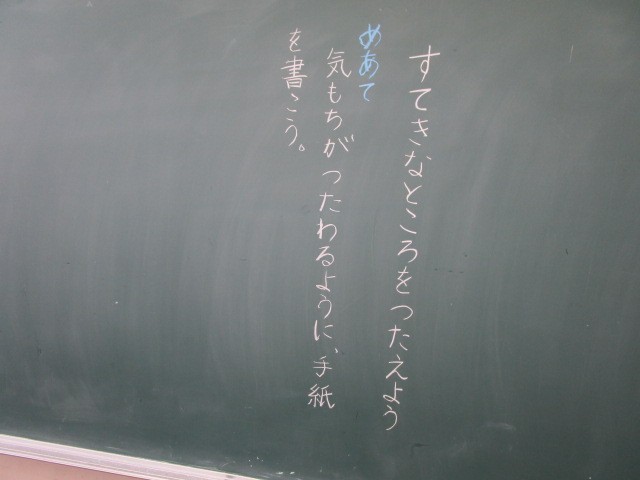 すてきなところをつたえよう
めあて
気もちがつたわるように、手紙
を書こう。